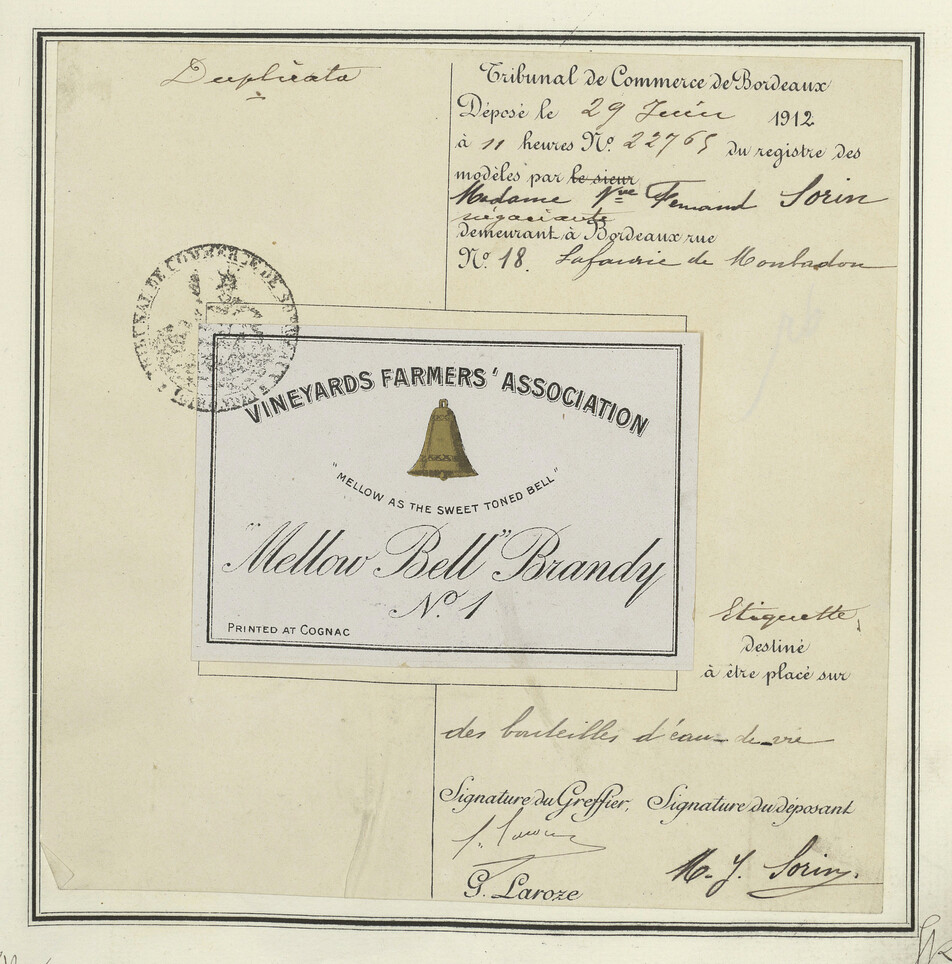 Duplicata
Tribunal de Commerce de Bordeaux
Déposé le 29 Juin 1912
à 11 heures No. 22765 du registre des
modèles par le sieur
Madame Vve Fernand Sorin
négociante
demeurant à Bordeaux rue
No. 18. Lafaurie de Monbadon
TRIBUNAL DE COMMERCE DE
VINEYARDS FARMERS' ASSOCIATION
"MELLOW AS THE SWEET TONED BELL"
"Mellow Bell" Brandy
No. 1
PRINTED AT COGNAC
Etiquette,
destiné
à être placé sur
des bouteilles d'eau-de-vie
Signature du Greffier, Signature du déposant
G. Laroze
M. J. Sorin.